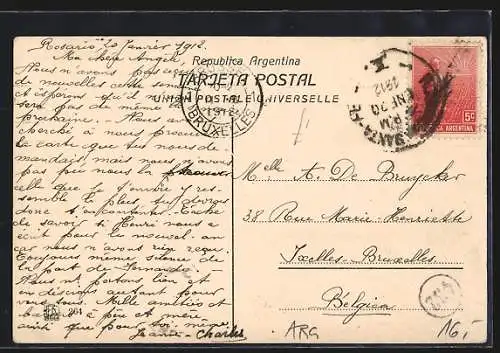 Rosario 20 Janvier 1912.
Ma chère Angèle
Nous n'avons pas reçu
de nouvelles cette semaine
espérons qu'il n'en
sera pas de même
prochaine. Nous avons
cherché à nous procurer
la carte que tu nous de-
mandais mais nous n'avons
pas pu nous la procurer
celle que je t'envoie y res-
semble le plus, tu devras
donc t'en contenter. Tâche
de savoir si Henri nous a
écrit pour le nouvel-an
car nous n'avons rien reçu.
Toujours même silence de
la part de Fernande.
Nous portons bien et
en désirons autant pour
vous tous. Mille amitiés et
baisers à père et mère
ainsi que pour toi même
Jeanne-Charles
Republica Argentina
TARJETA POSTAL
UNION POSTALE UNIVERSELLE
BRUXELLES
1912
SANTA-FE
ENE 20
PM
1912
5c
REPUBLICA ARGENTINA
Melle A. De Bruycker
38 Rue Marie-Henriette
Ixelles-Bruxelles
Belgica
264
ARG
16,-